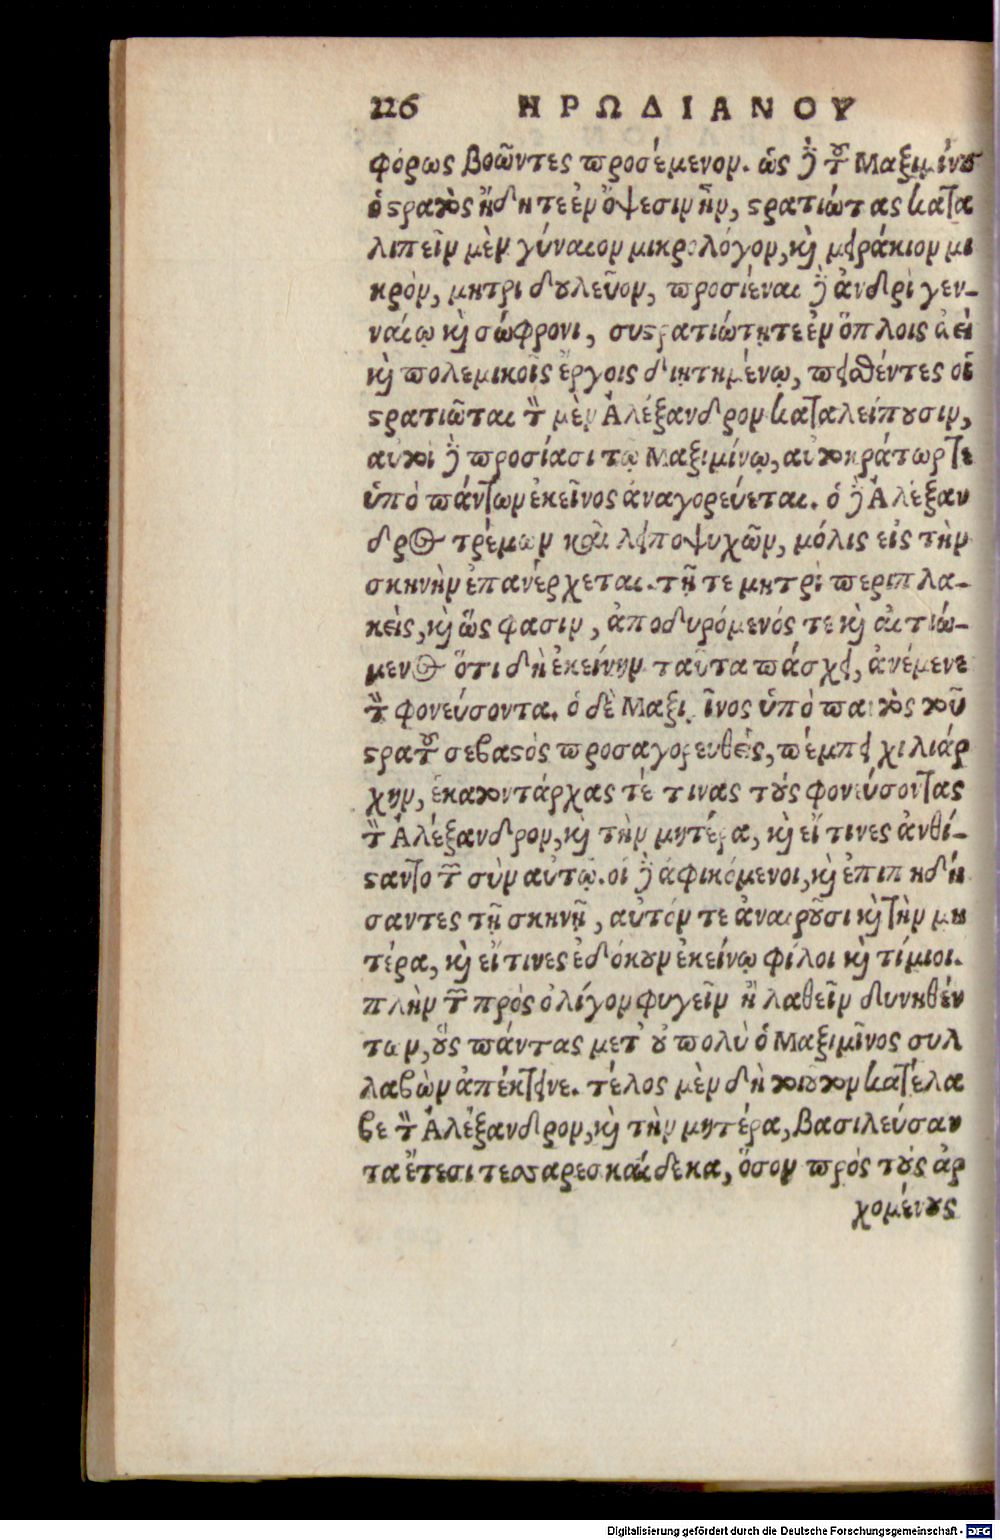 226 ΗΡΩΔΙΑΝΟΥ
φόρως βοῶντες προσέμενον. ὡς δὲ τοῦ Μαξιμίνου
ὁ στρατὸς ἤδη τε ἐν ὄψεσιν ἦν, στρατιώτας κατα
λιπεῖν μὲν γύναιον μικρολόγον, καὶ μειράκιον μι
κρὸν, μητρὶ δουλεῦον, προσιέναι δὲ ἀνδρὶ γεν-
ναίῳ καὶ σώφρονι, συστρατιώτῃ τε ἐν ὅπλοις ἀεὶ
καὶ πολεμικοῖς ἔργοις διῃτημένῳ, πεισθέντες οἱ
στρατιῶται τὸν μὲν Ἀλέξανδρον καταλείπουσιν,
αὐτοὶ δὲ προσίασι τῷ Μαξιμίνῳ, αὐτοκράτωρ τε
ὑπὸ πάντων ἐκεῖνος ἀναγορεύεται. ὁ δὲ Ἀλέξαν
δρος τρέμων καὶ λειποψυχῶν, μόλις εἰς τὴν
σκηνὴν ἐπανέρχεται. τῇ τε μητρὶ περιπλα-
κεὶς, καὶ ὥς φασιν, ἀποδυρόμενός τε καὶ αἰτιώ-
μενος ὅτι δὴ ἐκείνην ταῦτα πάσχει, ἀνέμενε
τὸν φονεύσοντα. ὁ δὲ Μαξιμῖνος ὑπὸ παντὸς τοῦ
στρατοῦ σεβαστὸς προσαγορευθεὶς, πέμπει χιλιάρ
χην, ἑκατοντάρχας τέ τινας τοὺς φονεύσοντας
τὸν Ἀλέξανδρον, καὶ τὴν μητέρα, καὶ εἴ τινες ἀνθί-
σαντο τῶν σὺν αὐτῷ. οἱ δὲ ἀφικόμενοι, καὶ ἐπιπηδή
σαντες τῇ σκηνῇ, αὐτόν τε ἀναιροῦσι καὶ τὴν μη
τέρα, καὶ εἴ τινες ἐδόκουν ἐκείνῳ φίλοι καὶ τίμιοι.
πλὴν τῶν πρὸς ὀλίγον φυγεῖν ἢ λαθεῖν δυνηθέν
των, οὓς πάντας μετ' οὐ πολὺ ὁ Μαξιμῖνος συλ
λαβὼν ἀπέκτεινε. τέλος μὲν δὴ τοιοῦτον κατέλα
βε τὸν Ἀλέξανδρον, καὶ τὴν μητέρα, βασιλεύσαν
τα ἔτεσι τεσσαρεσκαίδεκα, ὅσον πρὸς τοὺς ἀρ
χομένους
Digitalisierung gefördert durch die Deutsche Forschungsgemeinschaft - DFG